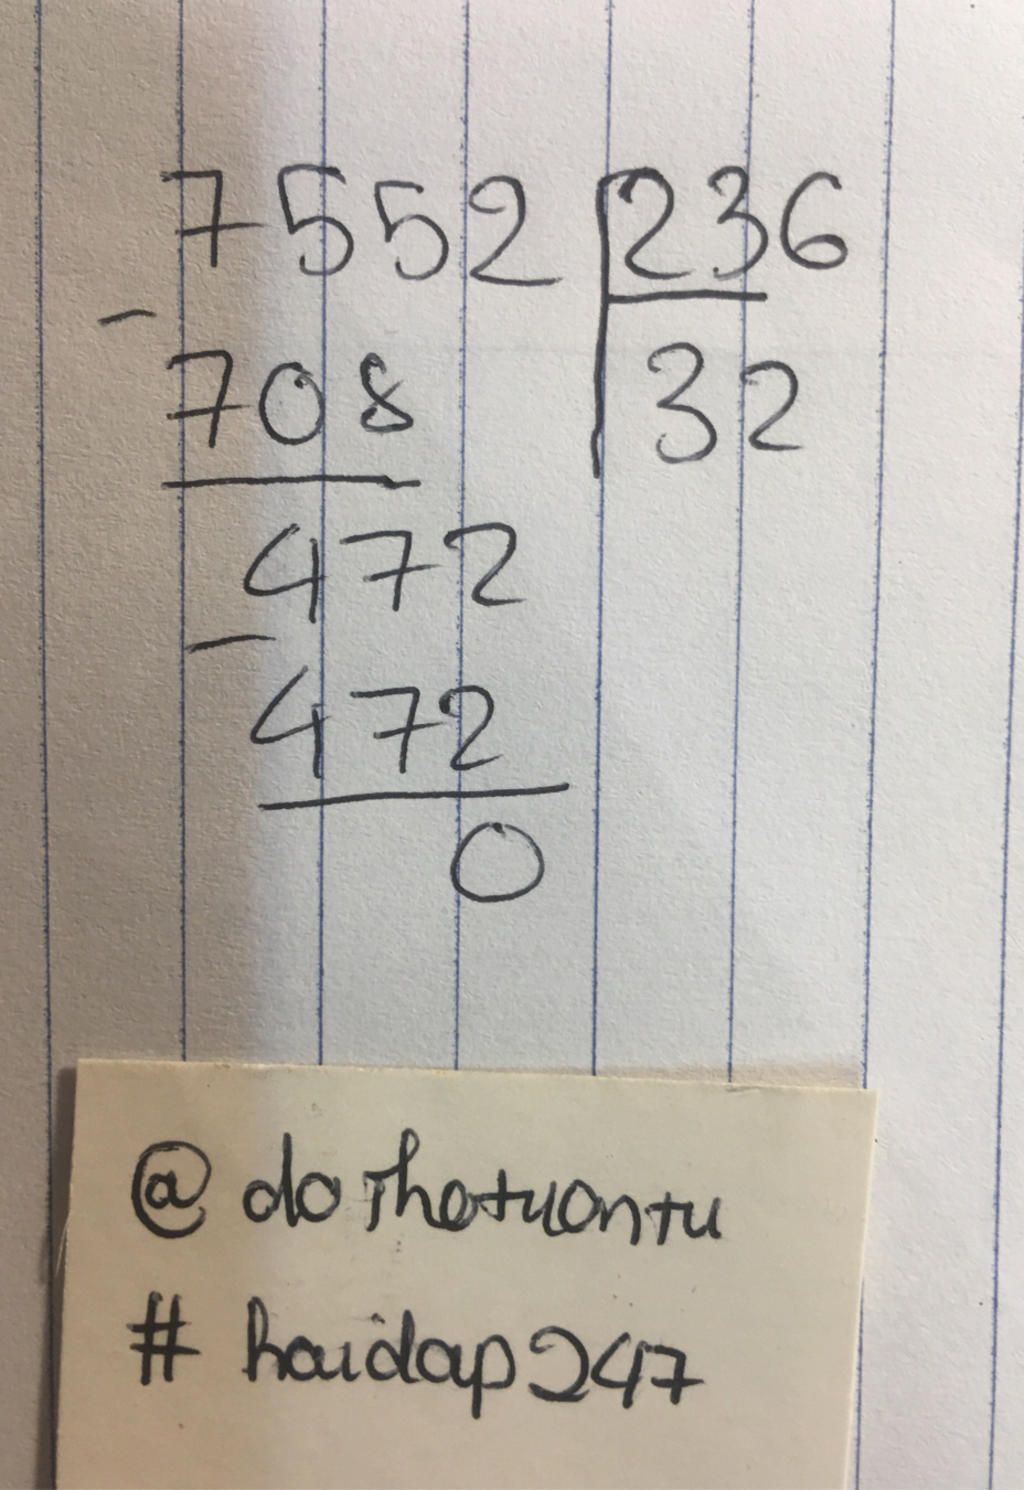 7552 236
- 32
708
472
-
472
0
@dothetuantu
#haidap247